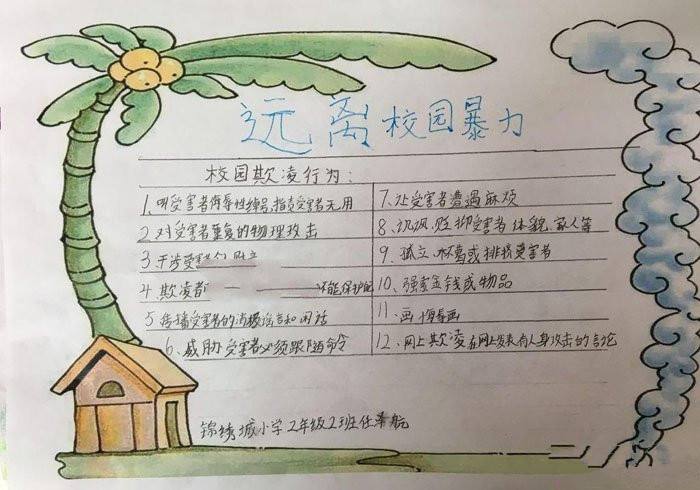 远离校园暴力
校园欺凌行为:
1.叫受害者侮辱性绰号,指责受害者无用
2.对受害者重复的物理攻击
3.干涉受害
4.欺凌者 不能保护
5.传播受害者的消极谣言和闲话
6.威胁受害者必须跟随命令
7.让受害者遭遇麻烦
8.讥讽、贬抑受害者体貌、家人等
9.孤立、杯葛或排挤受害者
10.强索金钱或物品
11.画侮辱画
12.网上欺凌在网上发表有人身攻击的言论
锦绣城小学2年级2班任 航